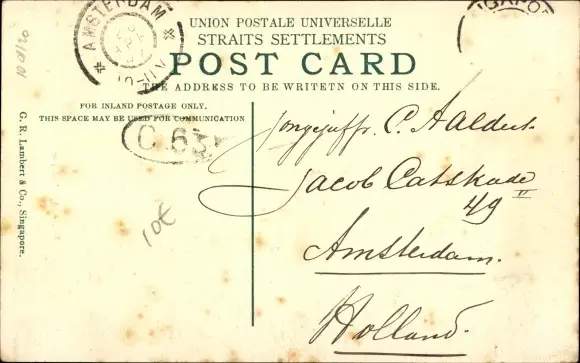 AMSTERDAM
UNION POSTALE UNIVERSELLE
STRAITS SETTLEMENTS
POST CARD
THE ADDRESS TO BE WRITETN ON THIS SIDE.
FOR INLAND POSTAGE ONLY.
THIS SPACE MAY BE USED FOR COMMUNICATION
G. R. Lambert & Co., Singapore.
C 63
10€
Jongejuffr. C. Aldert
Jacob Catskade
49 II
Amsterdam.
Holland.